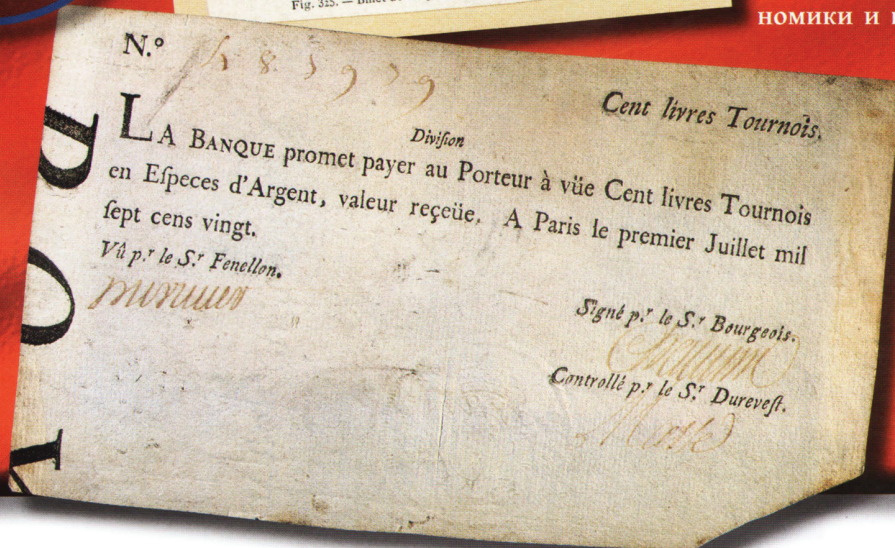 Fig. 325. — Billet
НОМИКИ И
N.º
Cent livres Tournois.
Division
LA BANQUE promet payer au Porteur à vüe Cent livres Tournois
en Eſpeces d'Argent, valeur reçeüe. A Paris le premier Juillet mil
ſept cens vingt.
Vû p.r le S.r Fenellon.
Signé p.r le S.r Bourgeois.
Controllé p.r le S.r Dureveſt.